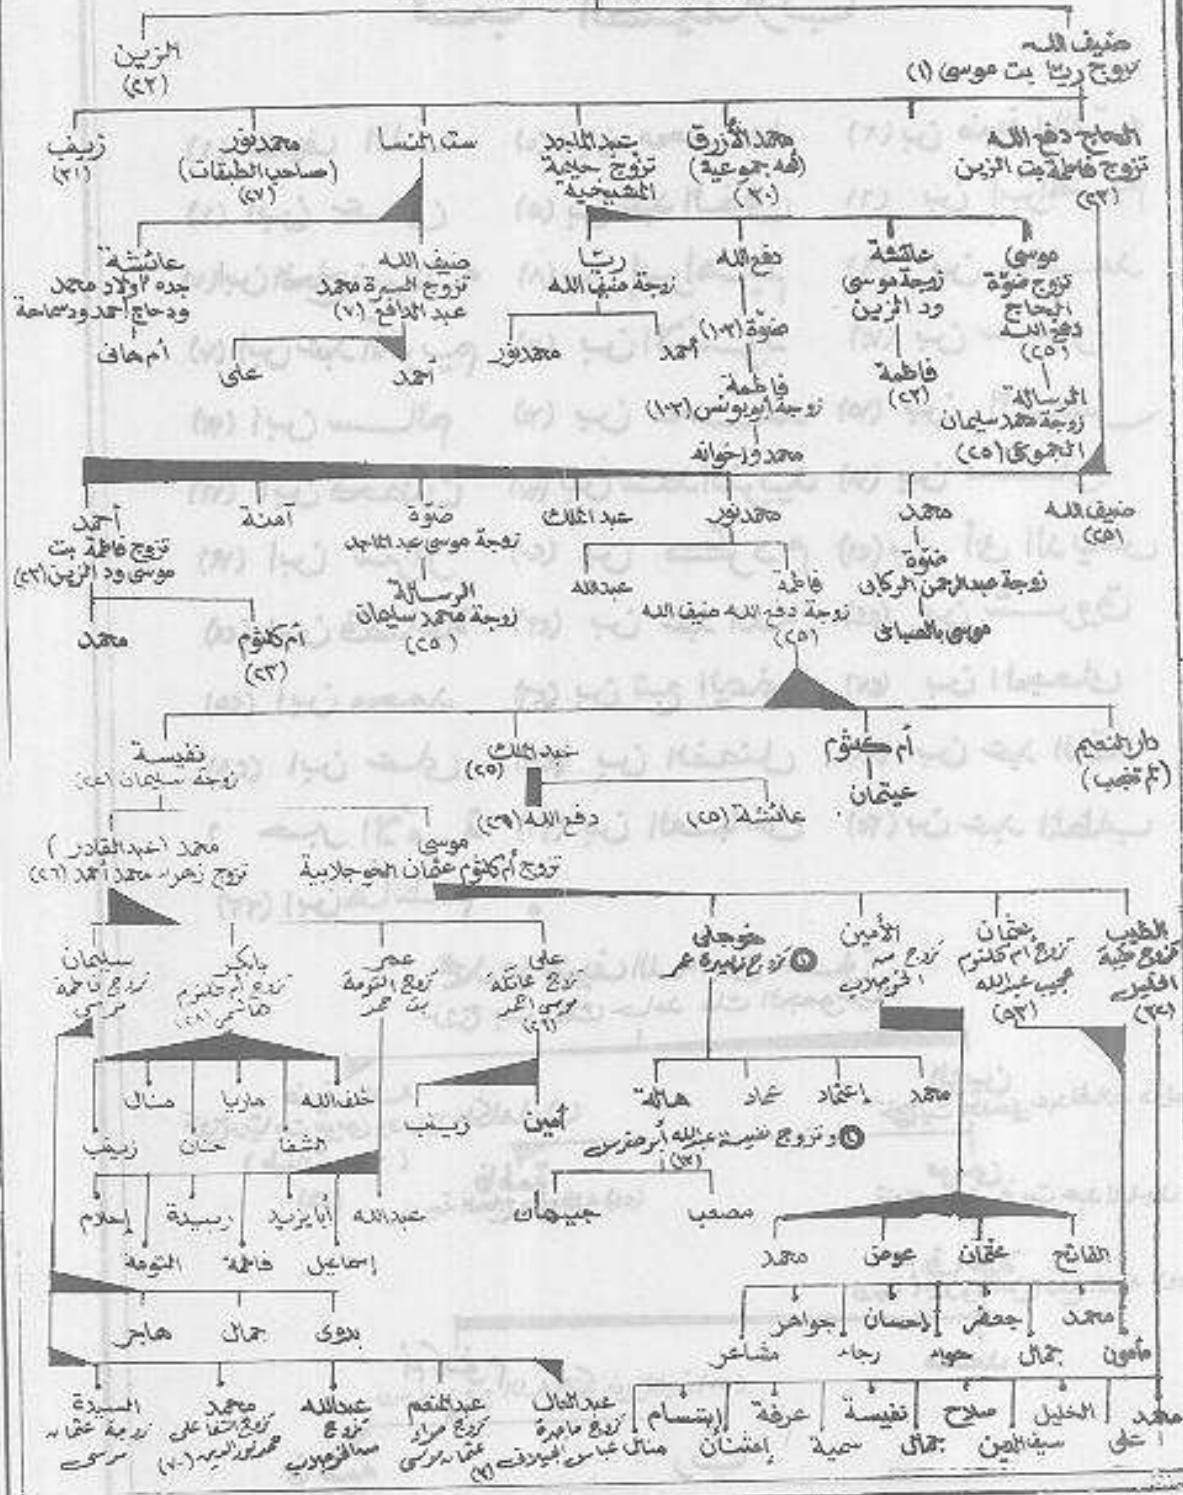 ضيف الله
تزوج ريّا بت موسى (١)
الزين
(٢٢)
الحاج دفع الله
تزوج فاطمة بت الزين
(٢٣)
محمد الأزرق
(أمه جموعية)
(٣٠)
عبد الماجد
تزوج حليمة
المشيخية
ست النسا
محمد نور
(صاحب الطبقات)
(٢٧)
زينب
(٣١)
موسى
تزوج ضوّة
الحاج
دفع الله
(٢٥)
الرسالة
زوجة محمد سليمان
الجموعى (٢٥)
عائشة
زوجة موسى
ود الزين
فاطمة
(٢٣)
دفع الله
ضوّة (١٠٣)
فاطمة
زوجة أبو يونس (١٠٣)
محمد وإخوانه
ريّا
زوجة ضيف الله
أحمد
محمد نور
ضيف الله
تزوج المسرة محمد
عبد الدافع (٧)
أحمد
على
عائشة
جدة أولاد محمد
ود حاج أحمد ود سماحة
أم هانى
ضيف الله
(٢٥)
محمد
ضوّة
زوجة عبد الرحمن الركابى
موسى بالصباغى
محمد نور
فاطمة
زوجة دفع الله ضيف الله
(٢٥)
عبد الله
عبد الملك
ضوّة
زوجة موسى عبد الماجد
الرسالة
زوجة محمد سليمان
(٢٥)
آمنة
أحمد
تزوج فاطمة بت
موسى ود الزين (٢٣)
أم كلثوم
(٢٣)
محمد
دار النعيم
(لم تنجب)
أم كلثوم
عيتمان
عبد الملك
(٢٥)
عائشة (٢٥)
دفع الله (٢٩)
نفيسة
زوجة سليمان
موسى
تزوج أم كلثوم عثمان الخوجلابية
محمد (عبد القادر)
تزوج زهراء محمد أحمد (٢٦)
الطيب
تزوج
(٣٢)
عثمان
تزوج أم كلثوم
مجيب عبد الله
(٩٣)
الأمين
تزوج من
الخوجلاب
خوجلى
① تزوج زبيدة عمر
على
تزوج عاتكة
موسى أحمد
(٢٦)
عمر
تزوج التومة
بت حمر
بابكر
تزوج أم كلثوم
هاشم (٢٨)
سليمان
تزوج فاطمة
موسى
محمد
إعتماد
عماد
هالة
② وتزوج نفيسة عبد الله أبو ضرس
(١٣)
مصعب
جيهان
أمين
زينب
خلف الله
ماريا
منال
الشفا
حنان
زينب
عبد الله
أبا يزيد
ربيدة
إحلام
إسماعيل
فاطمة
التومة
الفاتح
عثمان
عوض
محمد
محمد
جعفر
إحسان
جواهر
مأمون
جمال
حواء
رجاء
مشاعر
بدوى
جمال
هاجر
محمد
الخليل
صلاح
نفيسة
عرفة
إبتسام
على
سيف الدين
جمال
سمية
إمتنان
منال
عبد العال
تزوج ماجدة
عباس الجيلانى
(٧)
عبد المنعم
تزوج مراد
عثمان موسى
عبد الله
تزوج
من الخوجلاب
محمد
تزوج الشفا على
محمد نور الدين (٧٠)
السيدة
زوجة عثمان
موسى